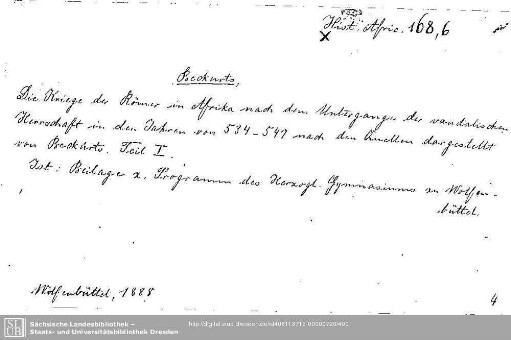 Hist. Afric. 168,6
Beckurts,
Die Kriege der Römer in Afrika nach dem Untergange der vandalischen
Herrschaft in den Jahren von 534-547 nach den Quellen dargestellt
von Beckurts. Teil I.
Ist: Beilage z. Programm des Herzogl. Gymnasiums zu Wolfen-
büttel.
Wolfenbüttel, 1888
4
SLUB
Sächsische Landesbibliothek –
Staats- und Universitätsbibliothek Dresden